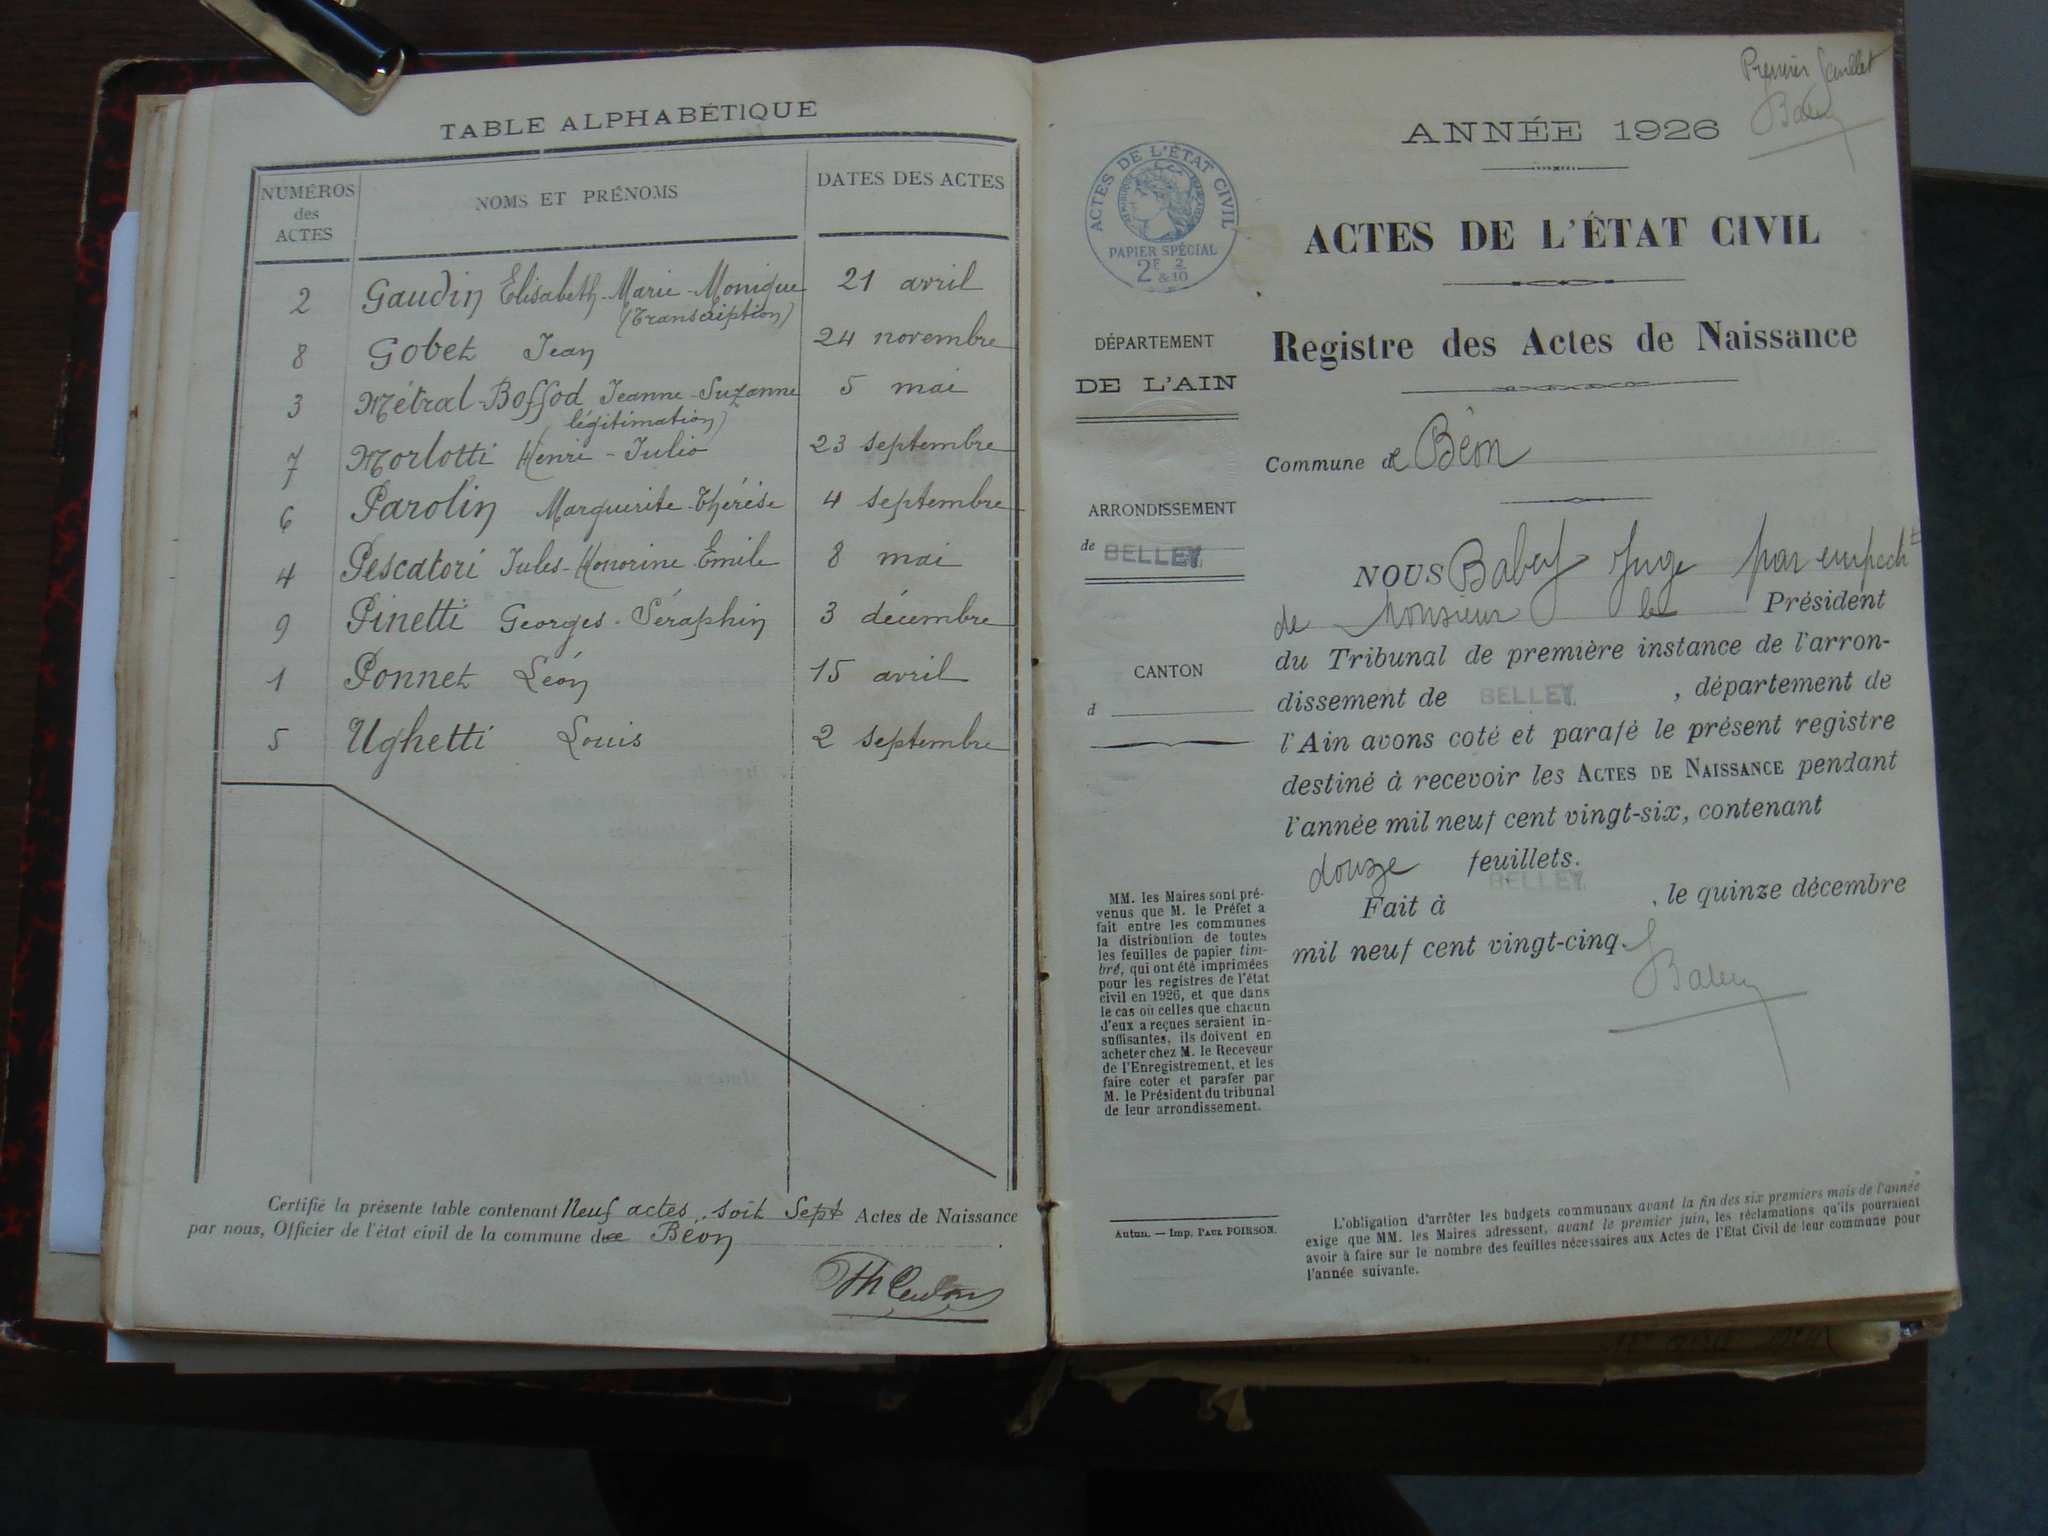 TABLE ALPHABÉTIQUE
NUMÉROS des ACTES NOMS ET PRÉNOMS DATES DES ACTES
2 Gaudin Elisabeth-Marie-Monique 21 avril
(Transcription)
8 Gobet Jean 24 novembre
3 Métral-Boffod Jeanne-Suzanne 5 mai
légitimation)
7 Morlotti Henri-Julio 23 septembre
6 Parolin Marguerite-Thérèse 4 septembre
4 Pescatori Jules-Honorine Emile 8 mai
9 Pinetti Georges-Séraphin 3 décembre
1 Ponnet Léon 15 avril
5 Ughetti Louis 2 septembre
Certifié la présente table contenant Neuf actes, soit Sept Actes de Naissance
par nous, Officier de l'état civil de la commune de Béon
Premier feuillet
ANNÉE 1926
ACTES DE L'ÉTAT CIVIL
PAPIER SPÉCIAL
2F 2/10
&
ACTES DE L'ÉTAT CIVIL
Registre des Actes de Naissance
DÉPARTEMENT
DE L'AIN
Commune de Béon
ARRONDISSEMENT
de BELLEY
CANTON
d
NOUS Juge par empecht
de Monsieur le Président
du Tribunal de première instance de l'arron-
dissement de BELLEY, département de
l'Ain avons coté et parafé le présent registre
destiné à recevoir les ACTES DE NAISSANCE pendant
l'année mil neuf cent vingt-six, contenant
douze feuillets.
Fait à BELLEY, le quinze décembre
mil neuf cent vingt-cinq.
MM. les Maires sont pré-
venus que M. le Préfet a
fait entre les communes
la distribution de toutes
les feuilles de papier tim-
bré, qui ont été imprimées
pour les registres de l'état
civil en 1926, et que dans
le cas où celles que chacun
d'eux a reçues seraient in-
suffisantes, ils doivent en
acheter chez M. le Receveur
de l'Enregistrement, et les
faire coter et parafer par
M. le Président du tribunal
de leur arrondissement.
Autun. — Imp. PAUL POIRSON.
L'obligation d'arrêter les budgets communaux avant la fin des six premiers mois de l'année
exige que MM. les Maires adressent, avant le premier juin, les réclamations qu'ils pourraient
avoir à faire sur le nombre des feuilles nécessaires aux Actes de l'Etat Civil de leur commune pour
l'année suivante.